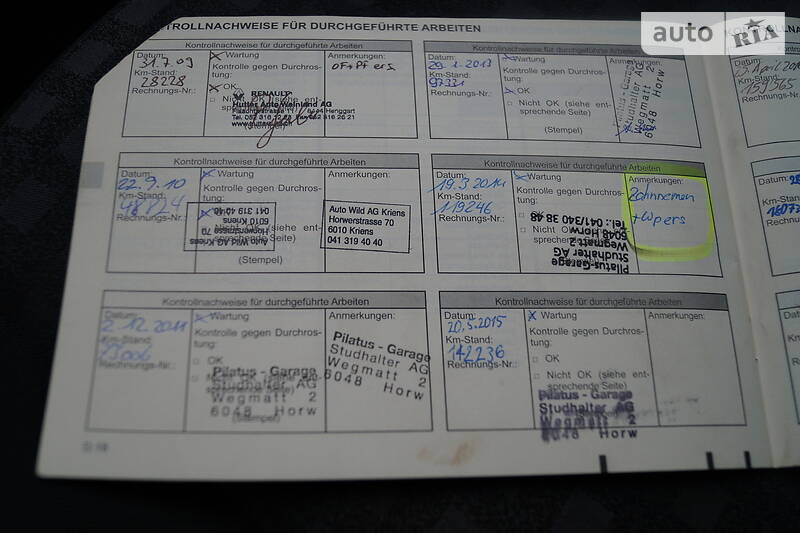 auto RIA
TROLLNACHWEISE FÜR DURCHGEFÜHRTE ARBEITEN
Kontrollnachweise für durchgeführte Arbeiten
Datum:
31.7.09
Km-Stand:
28228
Rechnungs-Nr.:
Wartung
Kontrolle gegen Durchros-
tung:
OK
Nicht OK (siehe ent-
(Stempel)
RENAULT
Hutter Auto Weinland AG
Anmerkungen:
Kontrollnachweise für durchgeführte Arbeiten
Datum:
29.1.2013
Km-Stand:
97331
Rechnungs-Nr.:
Wartung
Kontrolle gegen Durchros-
tung:
OK
Nicht OK (siehe ent-
sprechende Seite)
(Stempel)
Anmerkungen:
Pilatus-Garage
Studhalter AG
Wegmatt 2
6048 Horw
159565
Kontrollnachweise für durchgeführte Arbeiten
Datum:
22.9.10
Km-Stand:
Rechnungs-Nr.:
Wartung
Kontrolle gegen Durchros-
tung:
(Stempel)
Auto Wild AG Kriens
Horwerstrasse 70
6010 Kriens
041 319 40 40
Anmerkungen:
Auto Wild AG Kriens
Horwerstrasse 70
6010 Kriens
041 319 40 40
Kontrollnachweise für durchgeführte Arbeiten
Datum:
19.3.2014
Km-Stand:
119246
Rechnungs-Nr.:
Wartung
Kontrolle gegen Durchros-
tung:
OK
(Stempel)
Pilatus-Garage
Studhalter AG
Wegmatt 2
6048 Horw
Tel. 041/340 38 48
Anmerkungen:
Zahnriemen
+ Wpers
Kontrollnachweise für durchgeführte Arbeiten
Datum:
2.12.2011
Km-Stand:
73006
Rechnungs-Nr.:
Wartung
Kontrolle gegen Durchros-
tung:
OK
Nicht OK (siehe ent-
sprechende Seite)
(Stempel)
Pilatus - Garage
Studhalter AG
Wegmatt 2
6048 Horw
Anmerkungen:
Pilatus - Garage
Studhalter AG
Wegmatt 2
6048 Horw
Kontrollnachweise für durchgeführte Arbeiten
Datum:
20.5.2015
Km-Stand:
142236
Rechnungs-Nr.:
Wartung
Kontrolle gegen Durchros-
tung:
OK
Nicht OK (siehe ent-
sprechende Seite)
Pilatus - Garage
Studhalter AG
Wegmatt 2
6048 Horw
Anmerkungen: